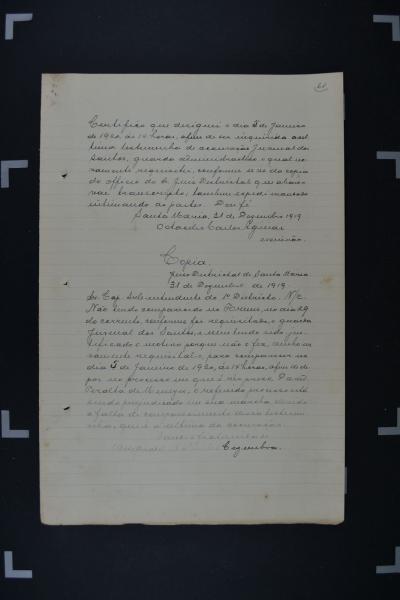 61
Certifico que designei o dia 5 de Janeiro
de 1920, ás 14 horas, afim de ser inquirida a ul
tima testemunha de accusação Juvenal dos
Santos, guarda administrativo o qual no
vamente requisitei, conforme se vê da copia
do officio do Sr. Juiz Districtal que abaixo
vai transcripto, tambem expedi mandado
intimando as partes. Dou fé
Santa Maria, 31 de Dezembro 1919
Octacilio Carlos Aguiar
escrivão.
Copia.
Juizo Districtal de Santa Maria
31 de Dezembro de 1919.
Sr. Cap. Sub-intendente do 1º Districto. N/c.
Não tendo comparecido no Forum, no dia 29
do corrente, conforme foi requisitado, o guarda
Juvenal dos Santos, e nem tendo sido jus
tificado o motivo porque não o fez, venho no
vamente requisital-o para comparecer no
dia 5 de Janeiro de 1920, ás 14 horas, afim de
por no processo em que é réo preso
Peralta de Menezes, o referido processo está
sendo prejudicado em sua marcha devido
a falta de comparecimento dessa testemu
nha, que é a ultima da accusação.